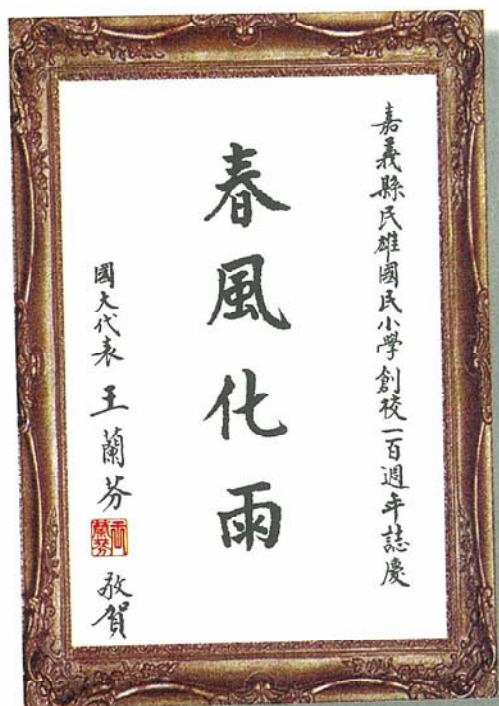 嘉義縣民雄國民小學創校一百週年誌慶
春風化雨
國大代表 王蘭芬 敬賀
王蘭芬